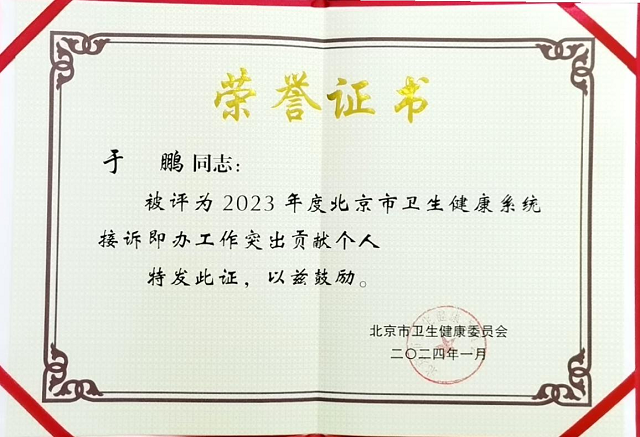 荣誉证书
于 鹏 同志：
被评为 2023 年度北京市卫生健康系统
接诉即办工作突出贡献个人
特发此证，以兹鼓励。
北京市卫生健康委员会
二〇二四年一月